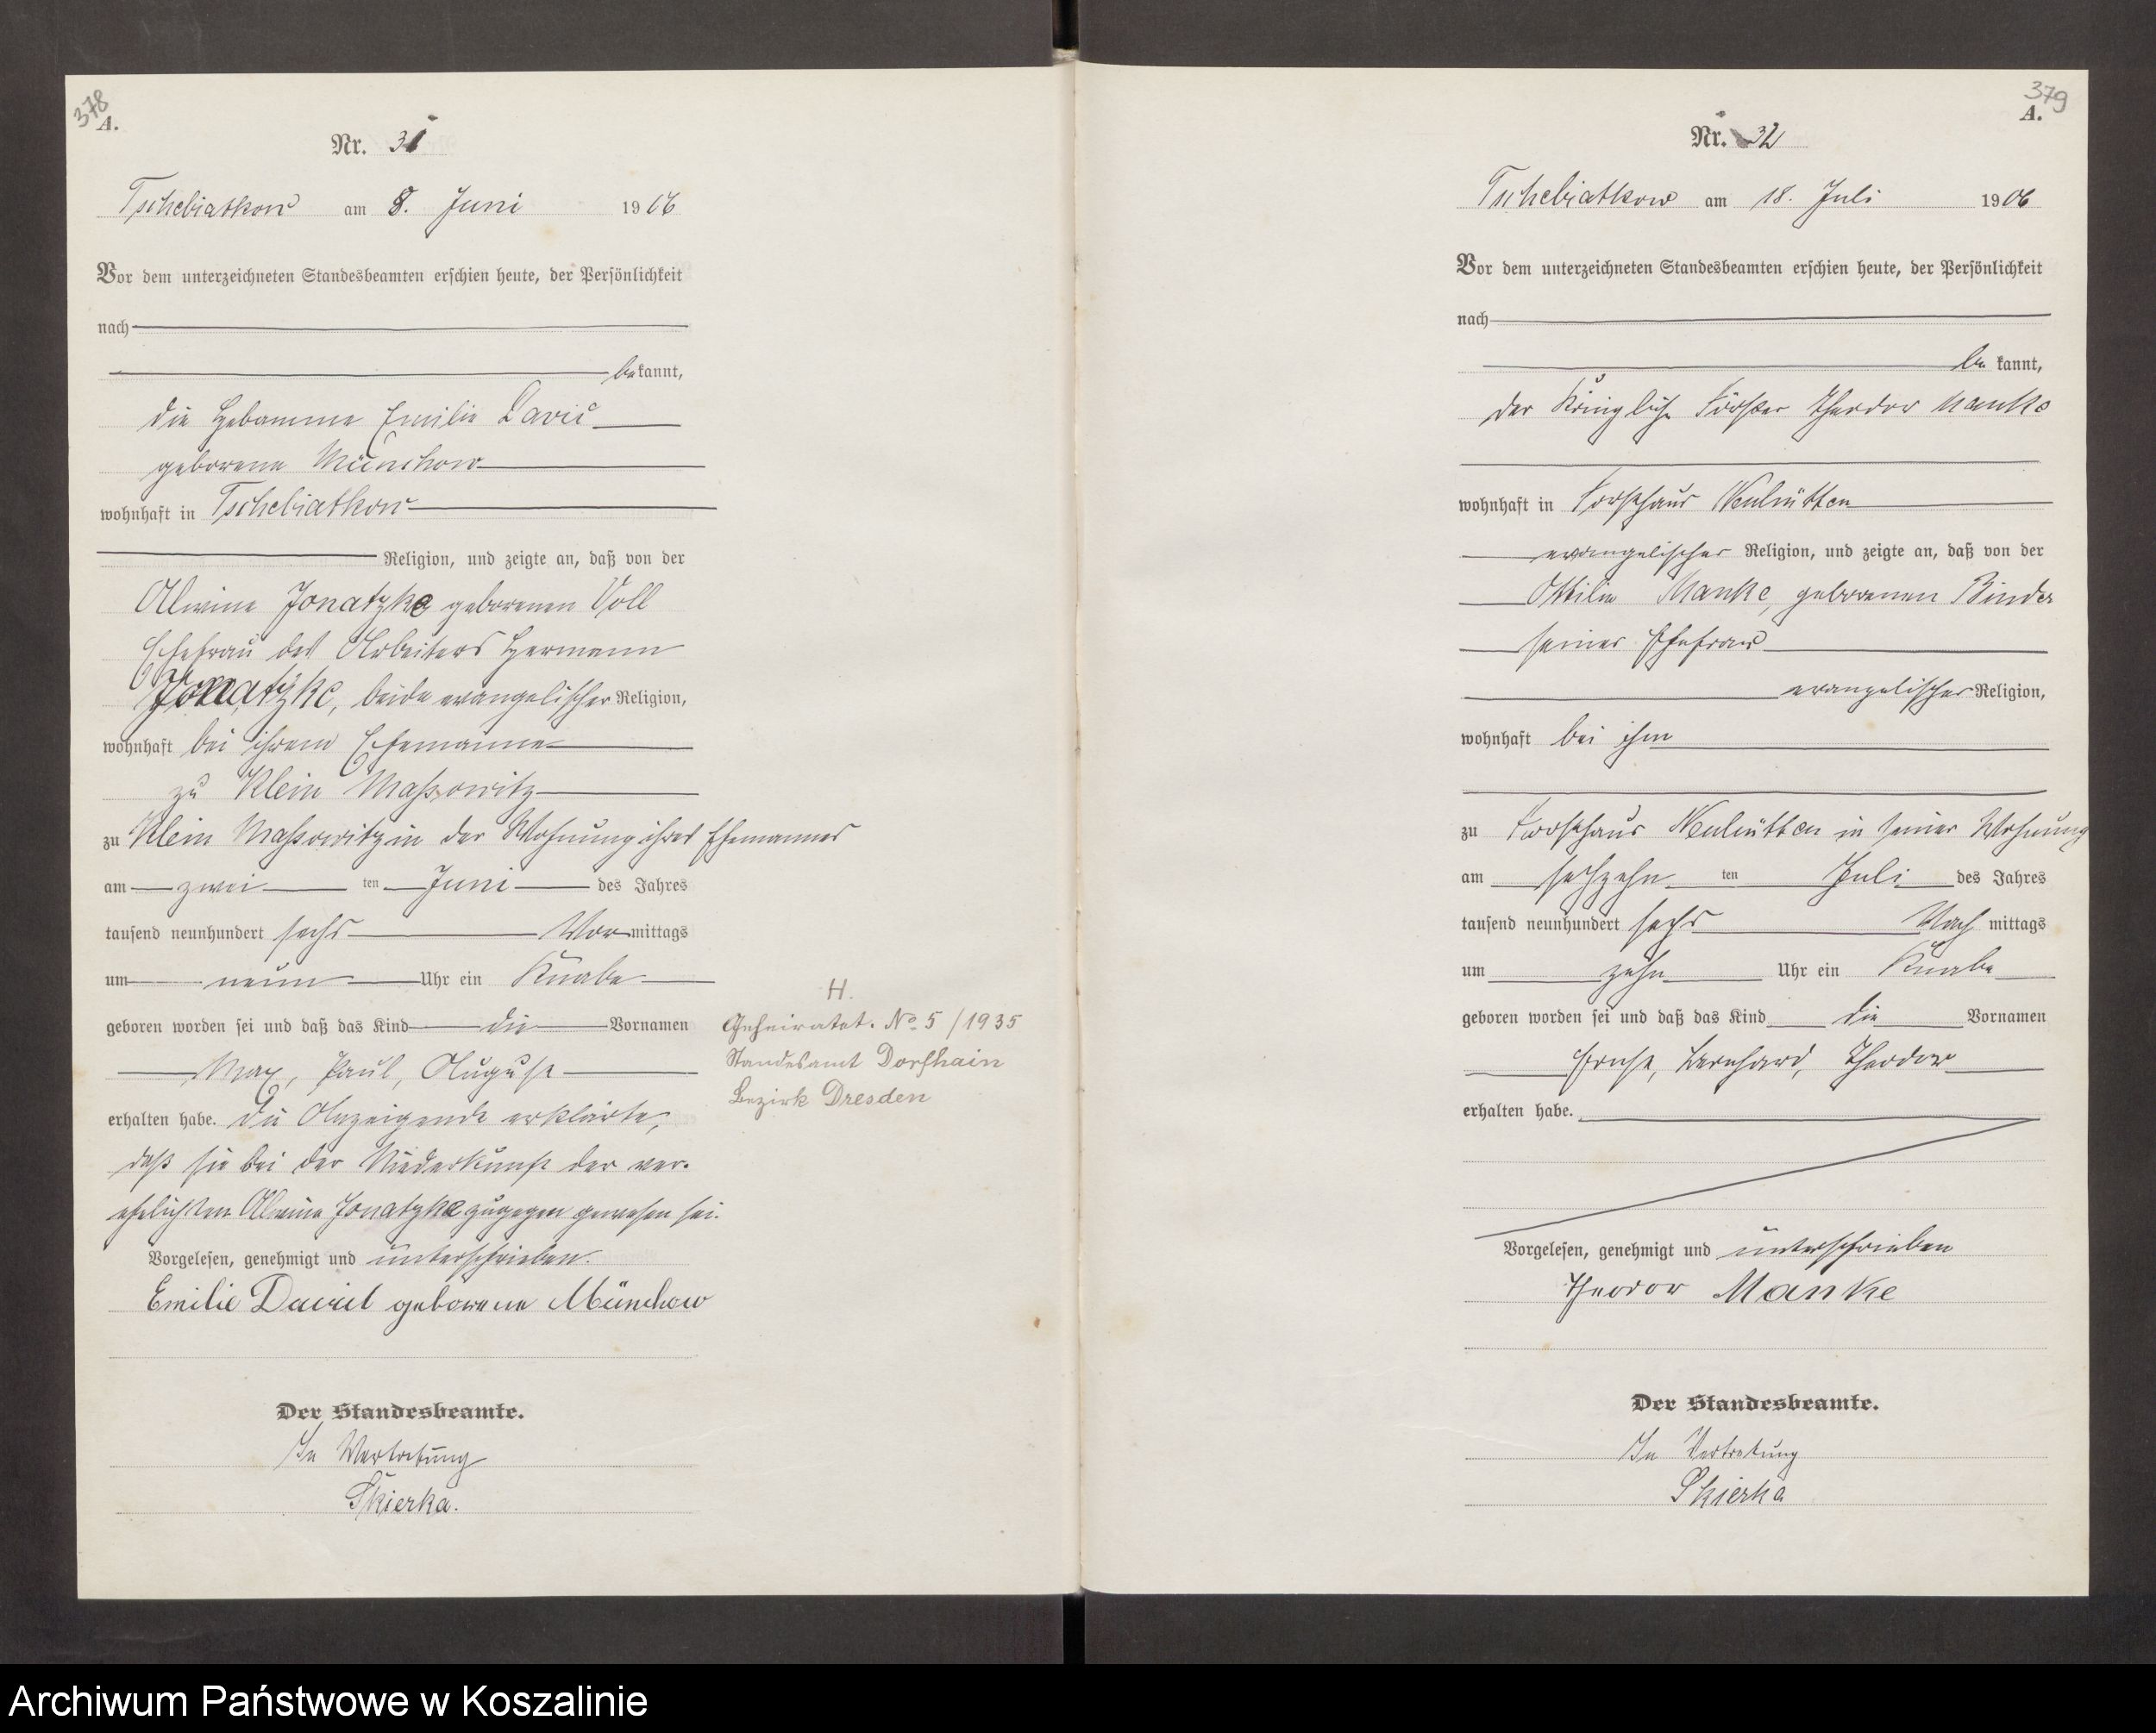 378
A.
Nr. 31
Tschebiatkow am 8. Juni 1906
Vor dem unterzeichneten Standesbeamten erschien heute, der Persönlichkeit
nach
bekannt,
die Hebamme Emilie
geborene Münchow
wohnhaft in Tschebiatkow
Religion, und zeigte an, daß von der
Alwine Jonatzke geborenen Voll
Ehefrau des Arbeiters Hermann
Jonatzke, beide evangelischer Religion,
wohnhaft bei ihrem Ehemanne
zu Klein Massowitz
zu Klein Massowitz in der Wohnung ihres Ehemannes
am zwei ten Juni des Jahres
tausend neunhundert sechs Vormittags
um neun Uhr ein Knabe
geboren worden sei und daß das Kind die Vornamen
Max, Paul, August
erhalten habe. Die Anzeigende erklärte,
daß sie bei der Niederkunft der ver-
ehelichten Alwine Jonatzke zugegen gewesen sei.
Vorgelesen, genehmigt und unterschrieben.
Emilie geborene Münchow
Der Standesbeamte.
In Vertretung
Skierka.
H.
Geheiratet. No 5/1935
Standesamt Dorfhain
Bezirk Dresden
379
A.
Nr. 32
Tschebiatkow am 18. Juli 1906
Vor dem unterzeichneten Standesbeamten erschien heute, der Persönlichkeit
nach
be kannt,
der Königliche Förster Theodor Manke
wohnhaft in Forsthaus Neuhütten
evangelischer Religion, und zeigte an, daß von der
Ottilie Manke, geborenen Binder
seiner Ehefrau
evangelischer Religion,
wohnhaft bei ihm
zu Forsthaus Neuhütten in seiner Wohnung
am sechzehn ten Juli des Jahres
tausend neunhundert sechs Nach mittags
um zehn Uhr ein Knabe
geboren worden sei und daß das Kind die Vornamen
Ernst, Bernhard, Theodor
erhalten habe.
Vorgelesen, genehmigt und unterschrieben
Theodor Manke
Der Standesbeamte.
In Vertretung
Skierka
Archiwum Państwowe w Koszalinie